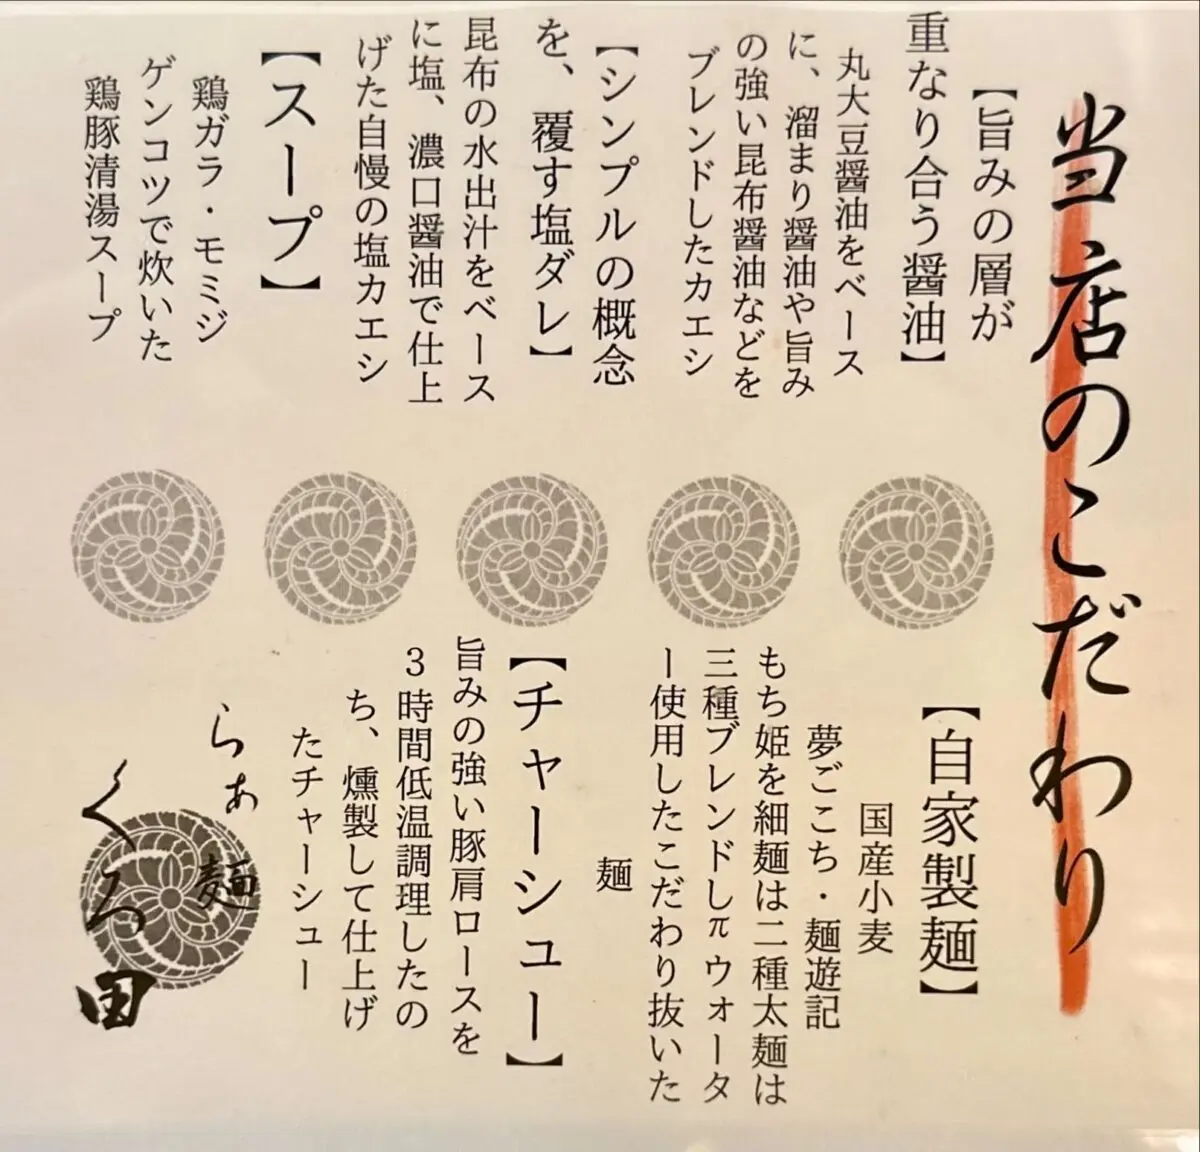 当店のこだわり
【旨みの層が
重なり合う醤油】
丸大豆醤油をベース
に、溜まり醤油や旨み
の強い昆布醤油などを
ブレンドしたカエシ
【シンプルの概念
を、覆す塩ダレ】
昆布の水出汁をベース
に塩、濃口醤油で仕上
げた自慢の塩カエシ
【スープ】
鶏ガラ・モミジ
ゲンコツで炊いた
鶏豚清湯スープ
【自家製麺】
国産小麦
夢ごこち・麺遊記
もち姫を細麺は二種太麺は
三種ブレンドしπウォータ
ー使用したこだわり抜いた
麺
【チャーシュー】
旨みの強い豚肩ロースを
3時間低温調理したの
ち、燻製して仕上げ
たチャーシュー
らぁ麺
くろ田